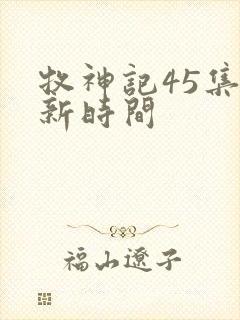 牧神記45集
新時間
福山遼子